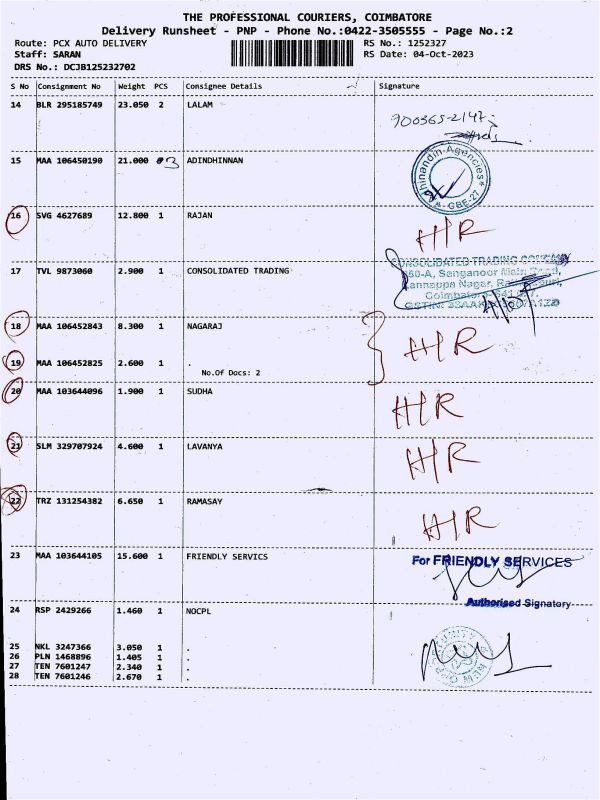 THE PROFESSIONAL COURIERS, COIMBATORE
Delivery Runsheet - PNP - Phone No.:0422-3505555 - Page No.:2
Route: PCX AUTO DELIVERY RS No.: 1252327
Staff: SARAN RS Date: 04-Oct-2023
DRS No.: DCJB125232702
S No Consignment No Weight PCS Consignee Details Signature
14 BLR 295185749 23.050 2 LALAM
900365-2147
15 MAA 106450190 21.000 3 ADINDHINNAN
Agencies
GBE-27
16 SVG 4627689 12.800 1 RAJAN H/R
CONSOLIDATED TRADING
17 TVL 9873060 2.900 1 CONSOLIDATED TRADING
Sanganoor Main Road,
Nagar,
18 MAA 106452843 8.300 1 NAGARAJ H/R
19 MAA 106452825 2.600 1 .
No.Of Docs: 2
20 MAA 103644096 1.900 1 SUDHA H/R
21 SLM 329707924 4.600 1 LAVANYA H/R
22 TRZ 131254382 6.650 1 RAMASAY H/R
23 MAA 103644105 15.600 1 FRIENDLY SERVICS
For FRIENDLY SERVICES
Authorised Signatory
24 RSP 2429266 1.460 1 NOCPL
25 NKL 3247366 3.050 1 .
26 PLN 1468896 1.405 1 .
27 TEN 7601247 2.340 1 .
28 TEN 7601246 2.670 1 .